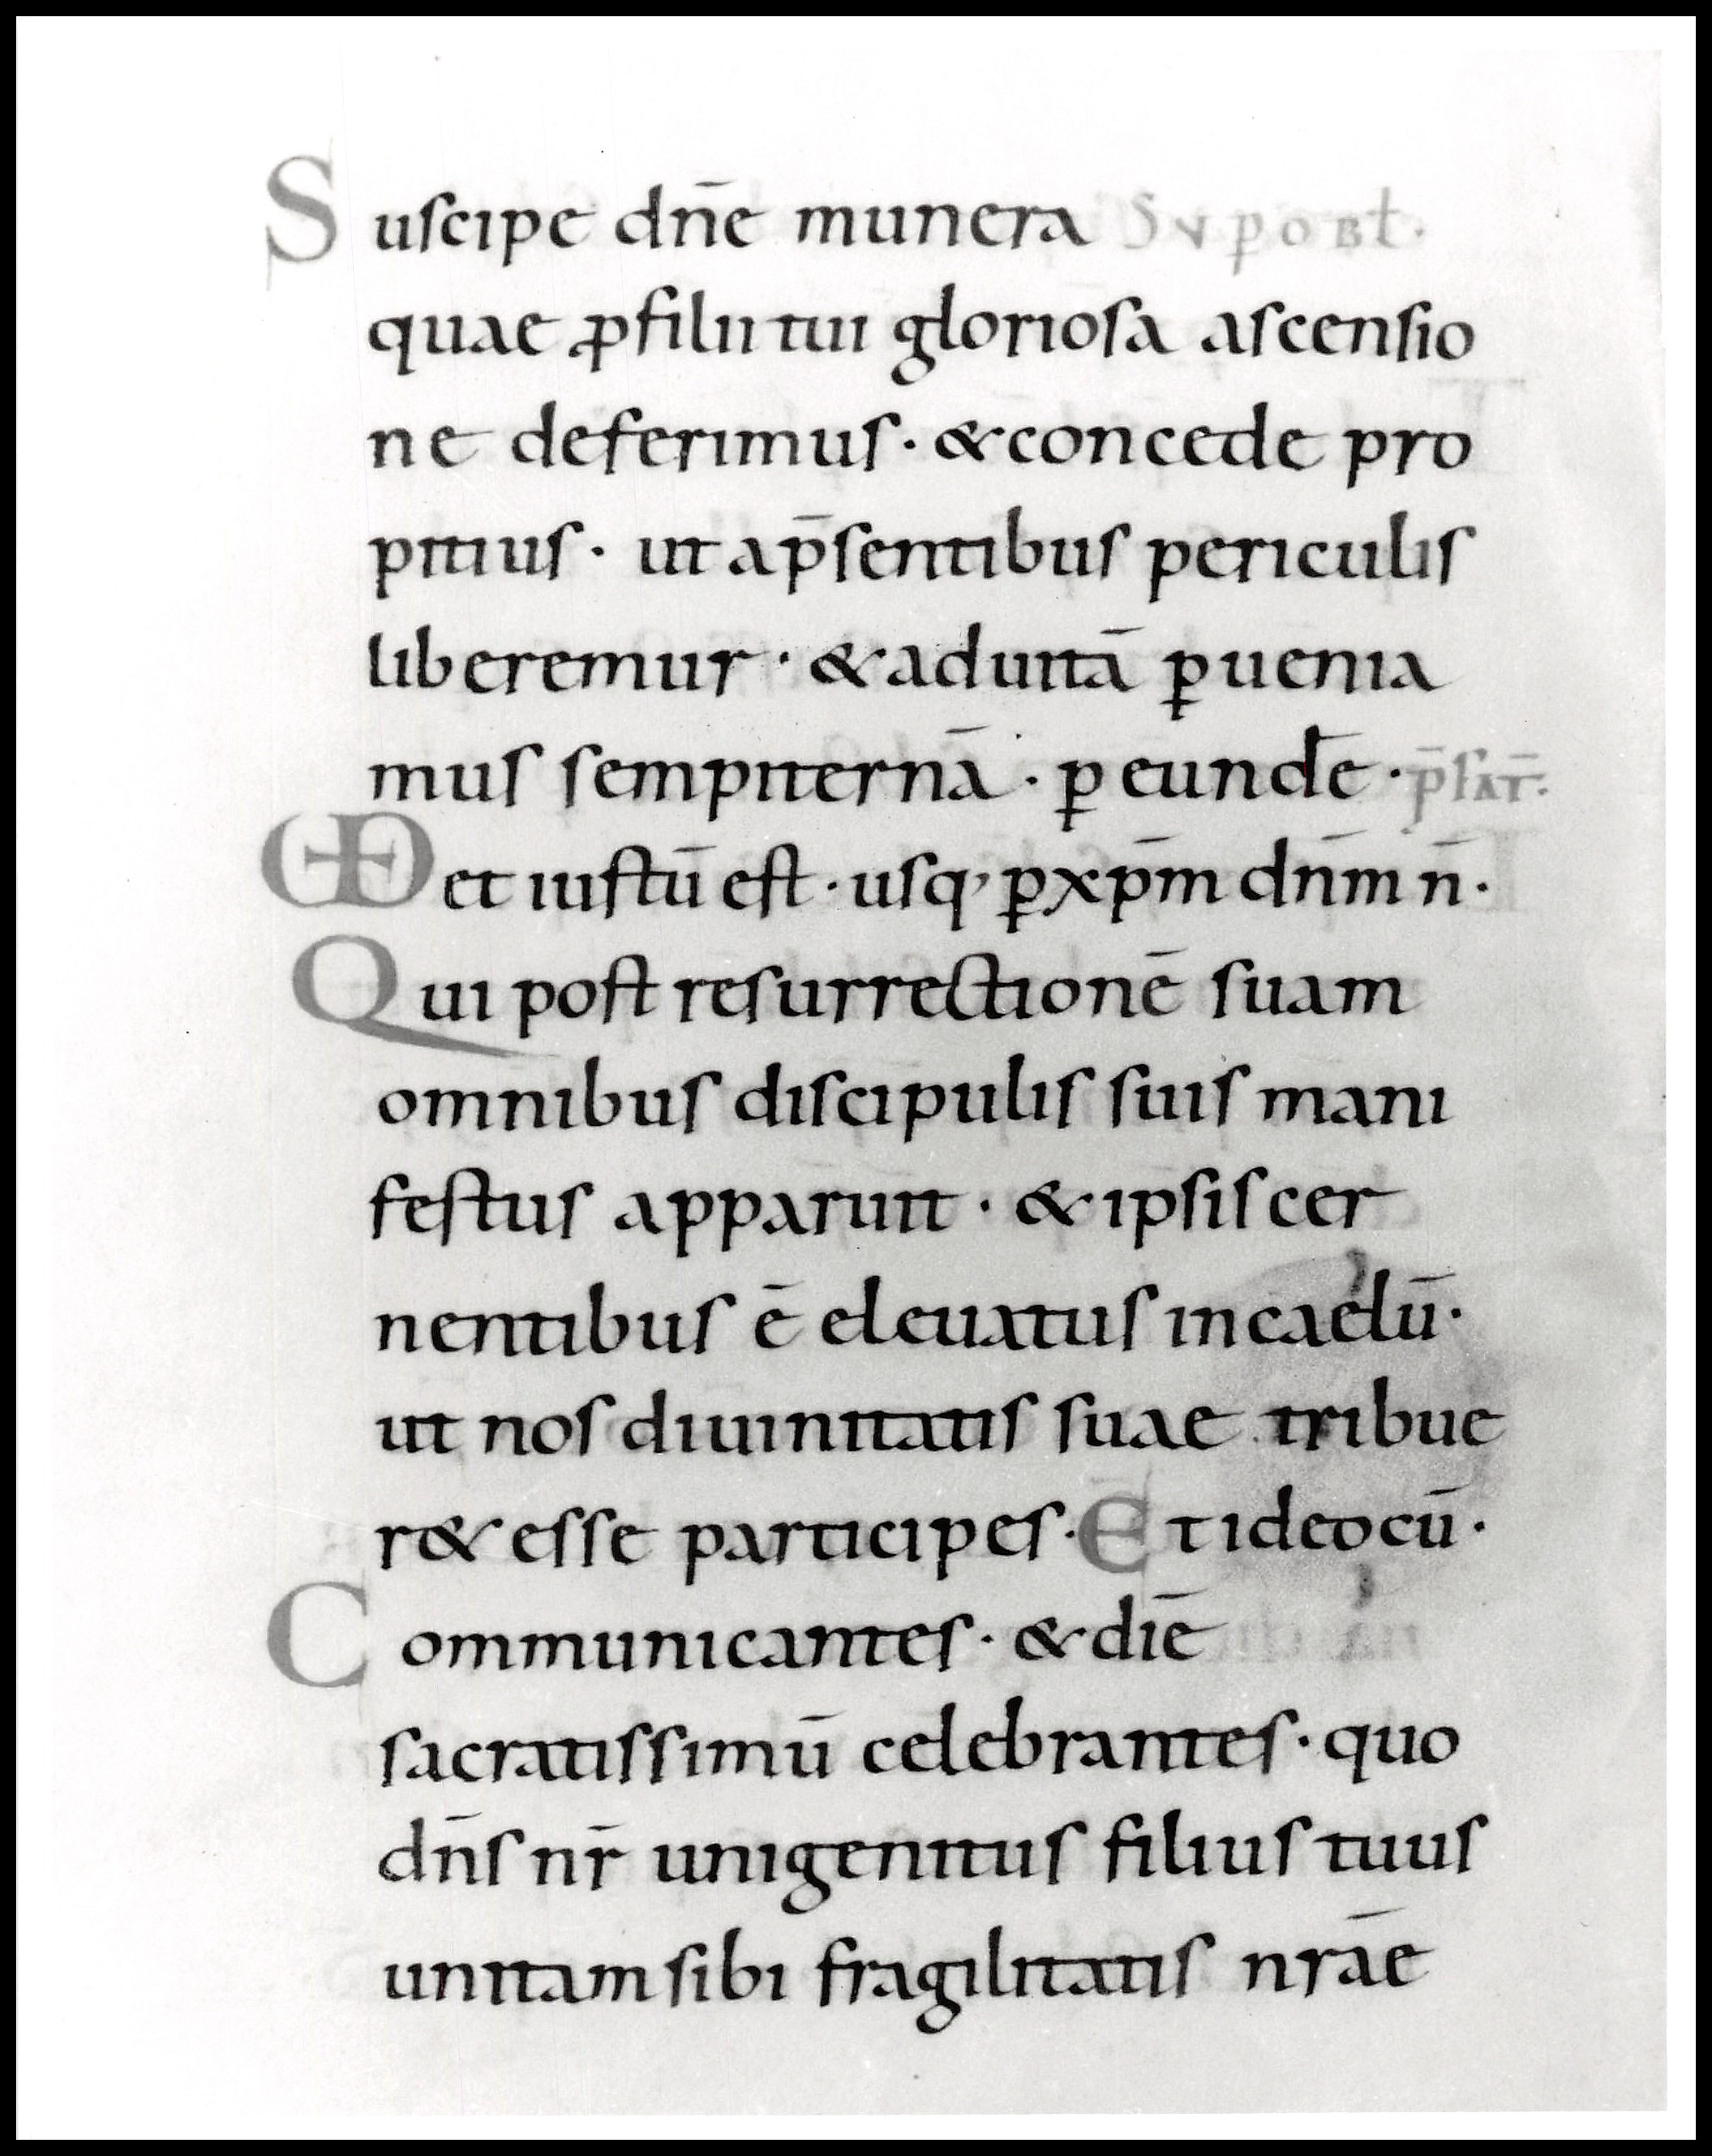 Suscipe dn̄e munera Sup obt̄.
quae ꝓ filii tui gloriosa ascensio
ne deferimus · & concede pro
pitius · ut a p̄sentibus periculis
liberemur · & ad uitā ꝑuenia
mus sempiternā · ꝑ eundē · p̄fat̄.
VD et iustū est · usq, ꝑ xp̄m dn̄m n̄ ·
Qui post resurrectionē suam
omnibus discipulis suis mani
festus apparuit · & ipsis cer
nentibus ē eleuatus in caelū ·
ut nos diuinitatis suae tribue
r& esse participes · Et ideo cū ·
Communicantes · & diē
sacratissimū celebrantes · quo
dn̄s nr̄ unigenitus filius tuus
unitam sibi fragilitatis nrāe